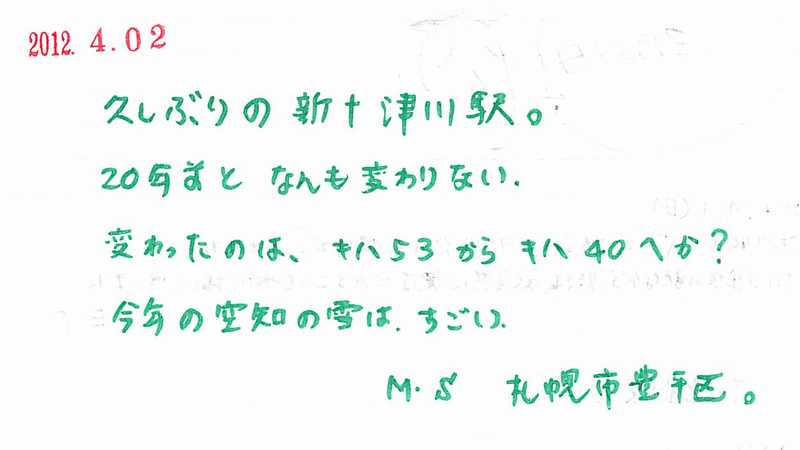 2012. 4.02
久しぶりの 新十津川駅。
20年前と なんも変わりない.
変わったのは、キハ53からキハ40へか?
今年の空知の雪は、すごい.
M.S 札幌市豊平区。